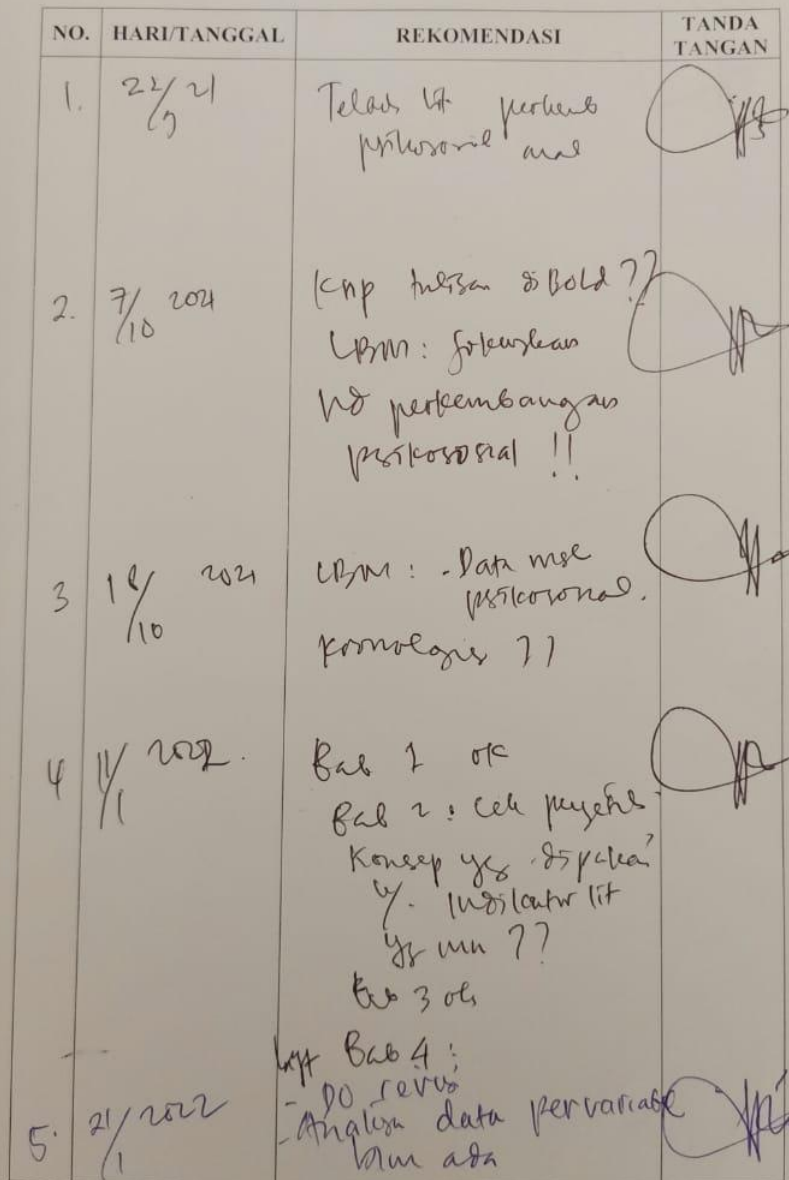 NO. HARI/TANGGAL REKOMENDASI TANDA TANGAN
1. 22/9 21 Telaah lit perkemb
psikososial anak
2. 7/10 2021 Knp tulisan diBold ??
LBM: fokuskan
perkembangan
psikososial !!
3 18/10 2021 LBM: - Data
psikososial.
Kronologis ??
4 11/1 2022. Bab 1 ok
Bab 2: cek
Konsep yg dipakai
indikator lit
yg mn ??
Bab 3 ok
Bab 4:
- DO revisi
5. 21/1 2022 - Analisa data pervariabel
blm ada